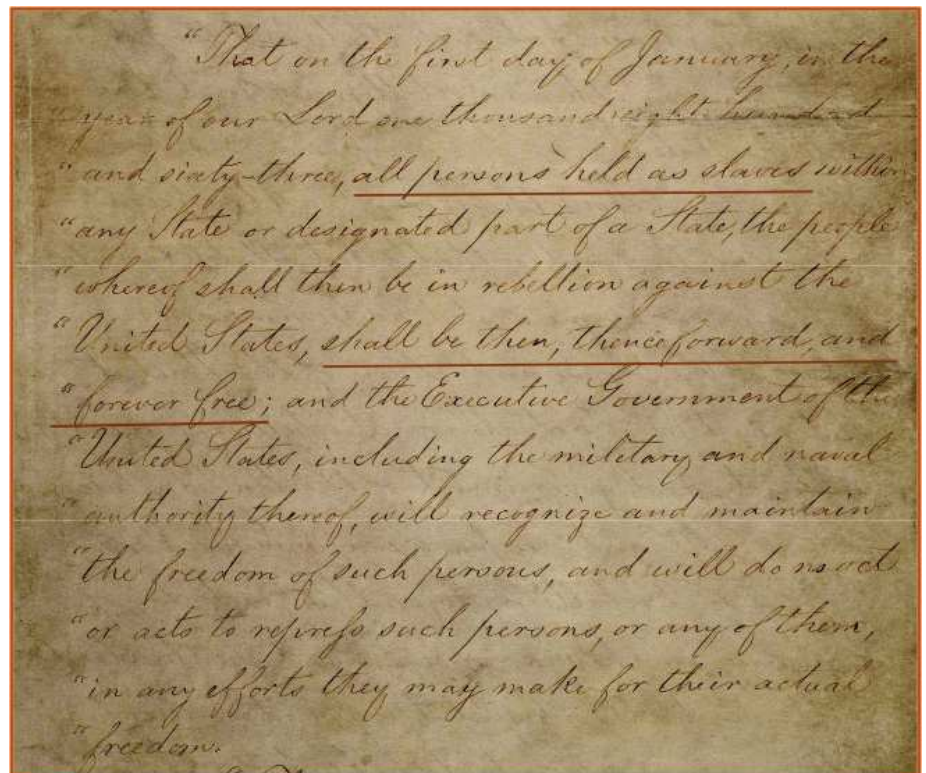 "That on the first day of January, in the
"year of our Lord one thousand eight hundred
"and sixty-three, all persons held as slaves within
"any State or designated part of a State, the people
"whereof shall then be in rebellion against the
"United States, shall be then, thenceforward, and
"forever free; and the Executive Government of the
"United States, including the military and naval
"authority thereof, will recognize and maintain
"the freedom of such persons, and will do no act
"or acts to repress such persons, or any of them,
"in any efforts they may make for their actual
"freedom.